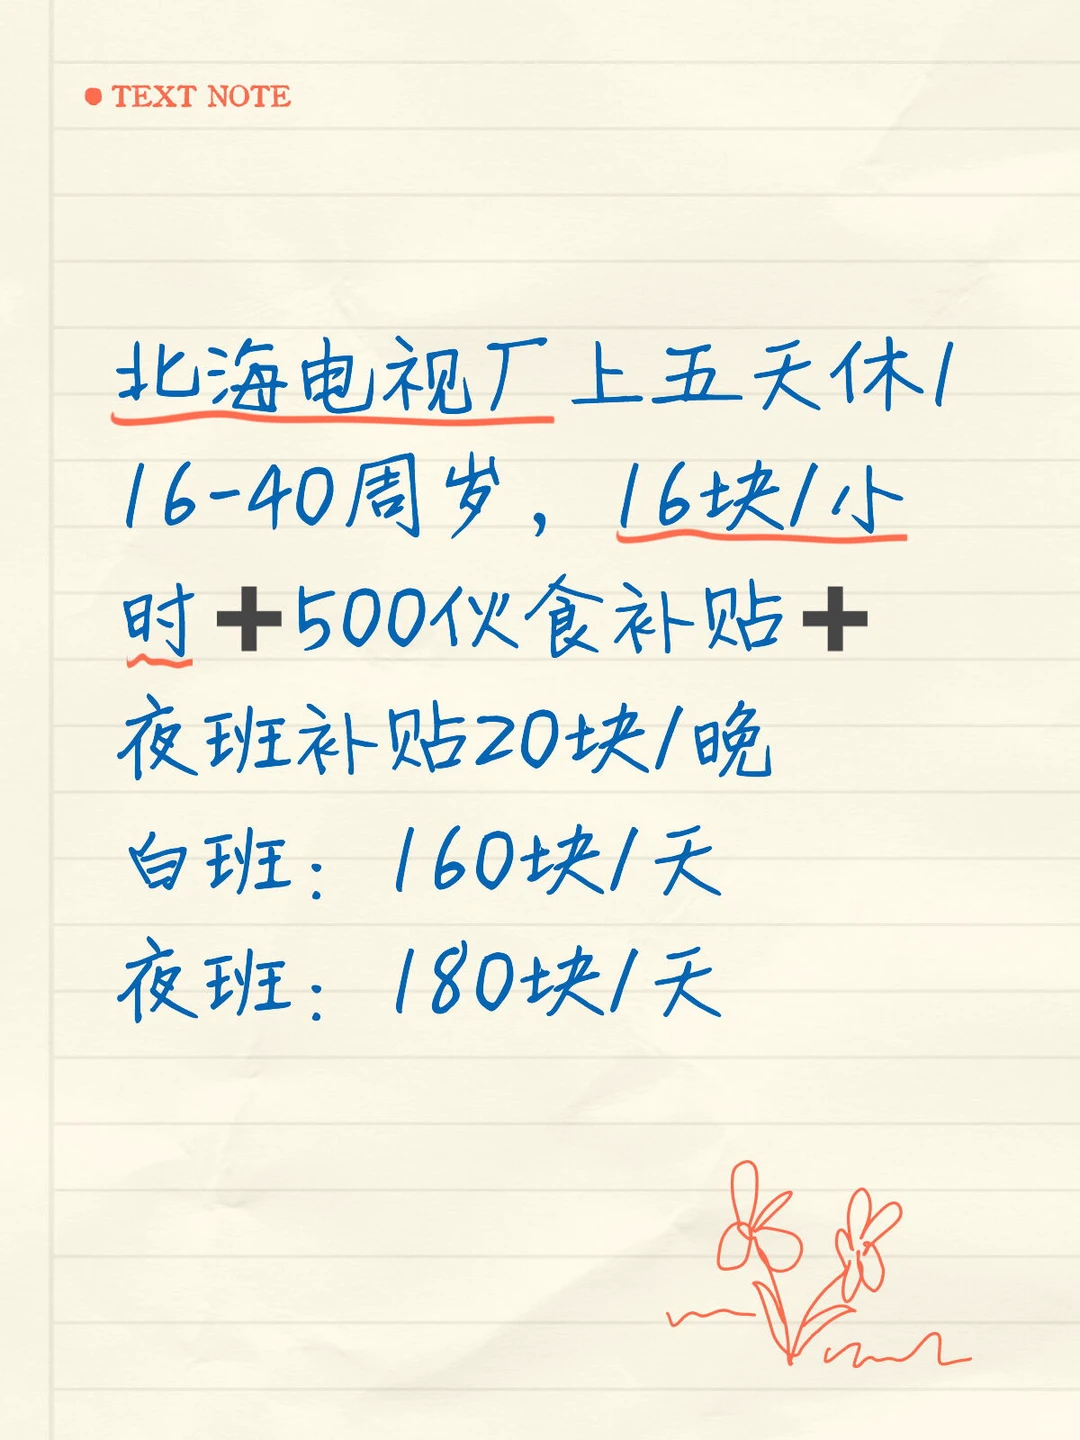 TEXT NOTE
北海电视厂上五天休1
16-40周岁，16块/小
时➕500伙食补贴➕
夜班补贴20块/晚
白班：160块/天
夜班：180块/天